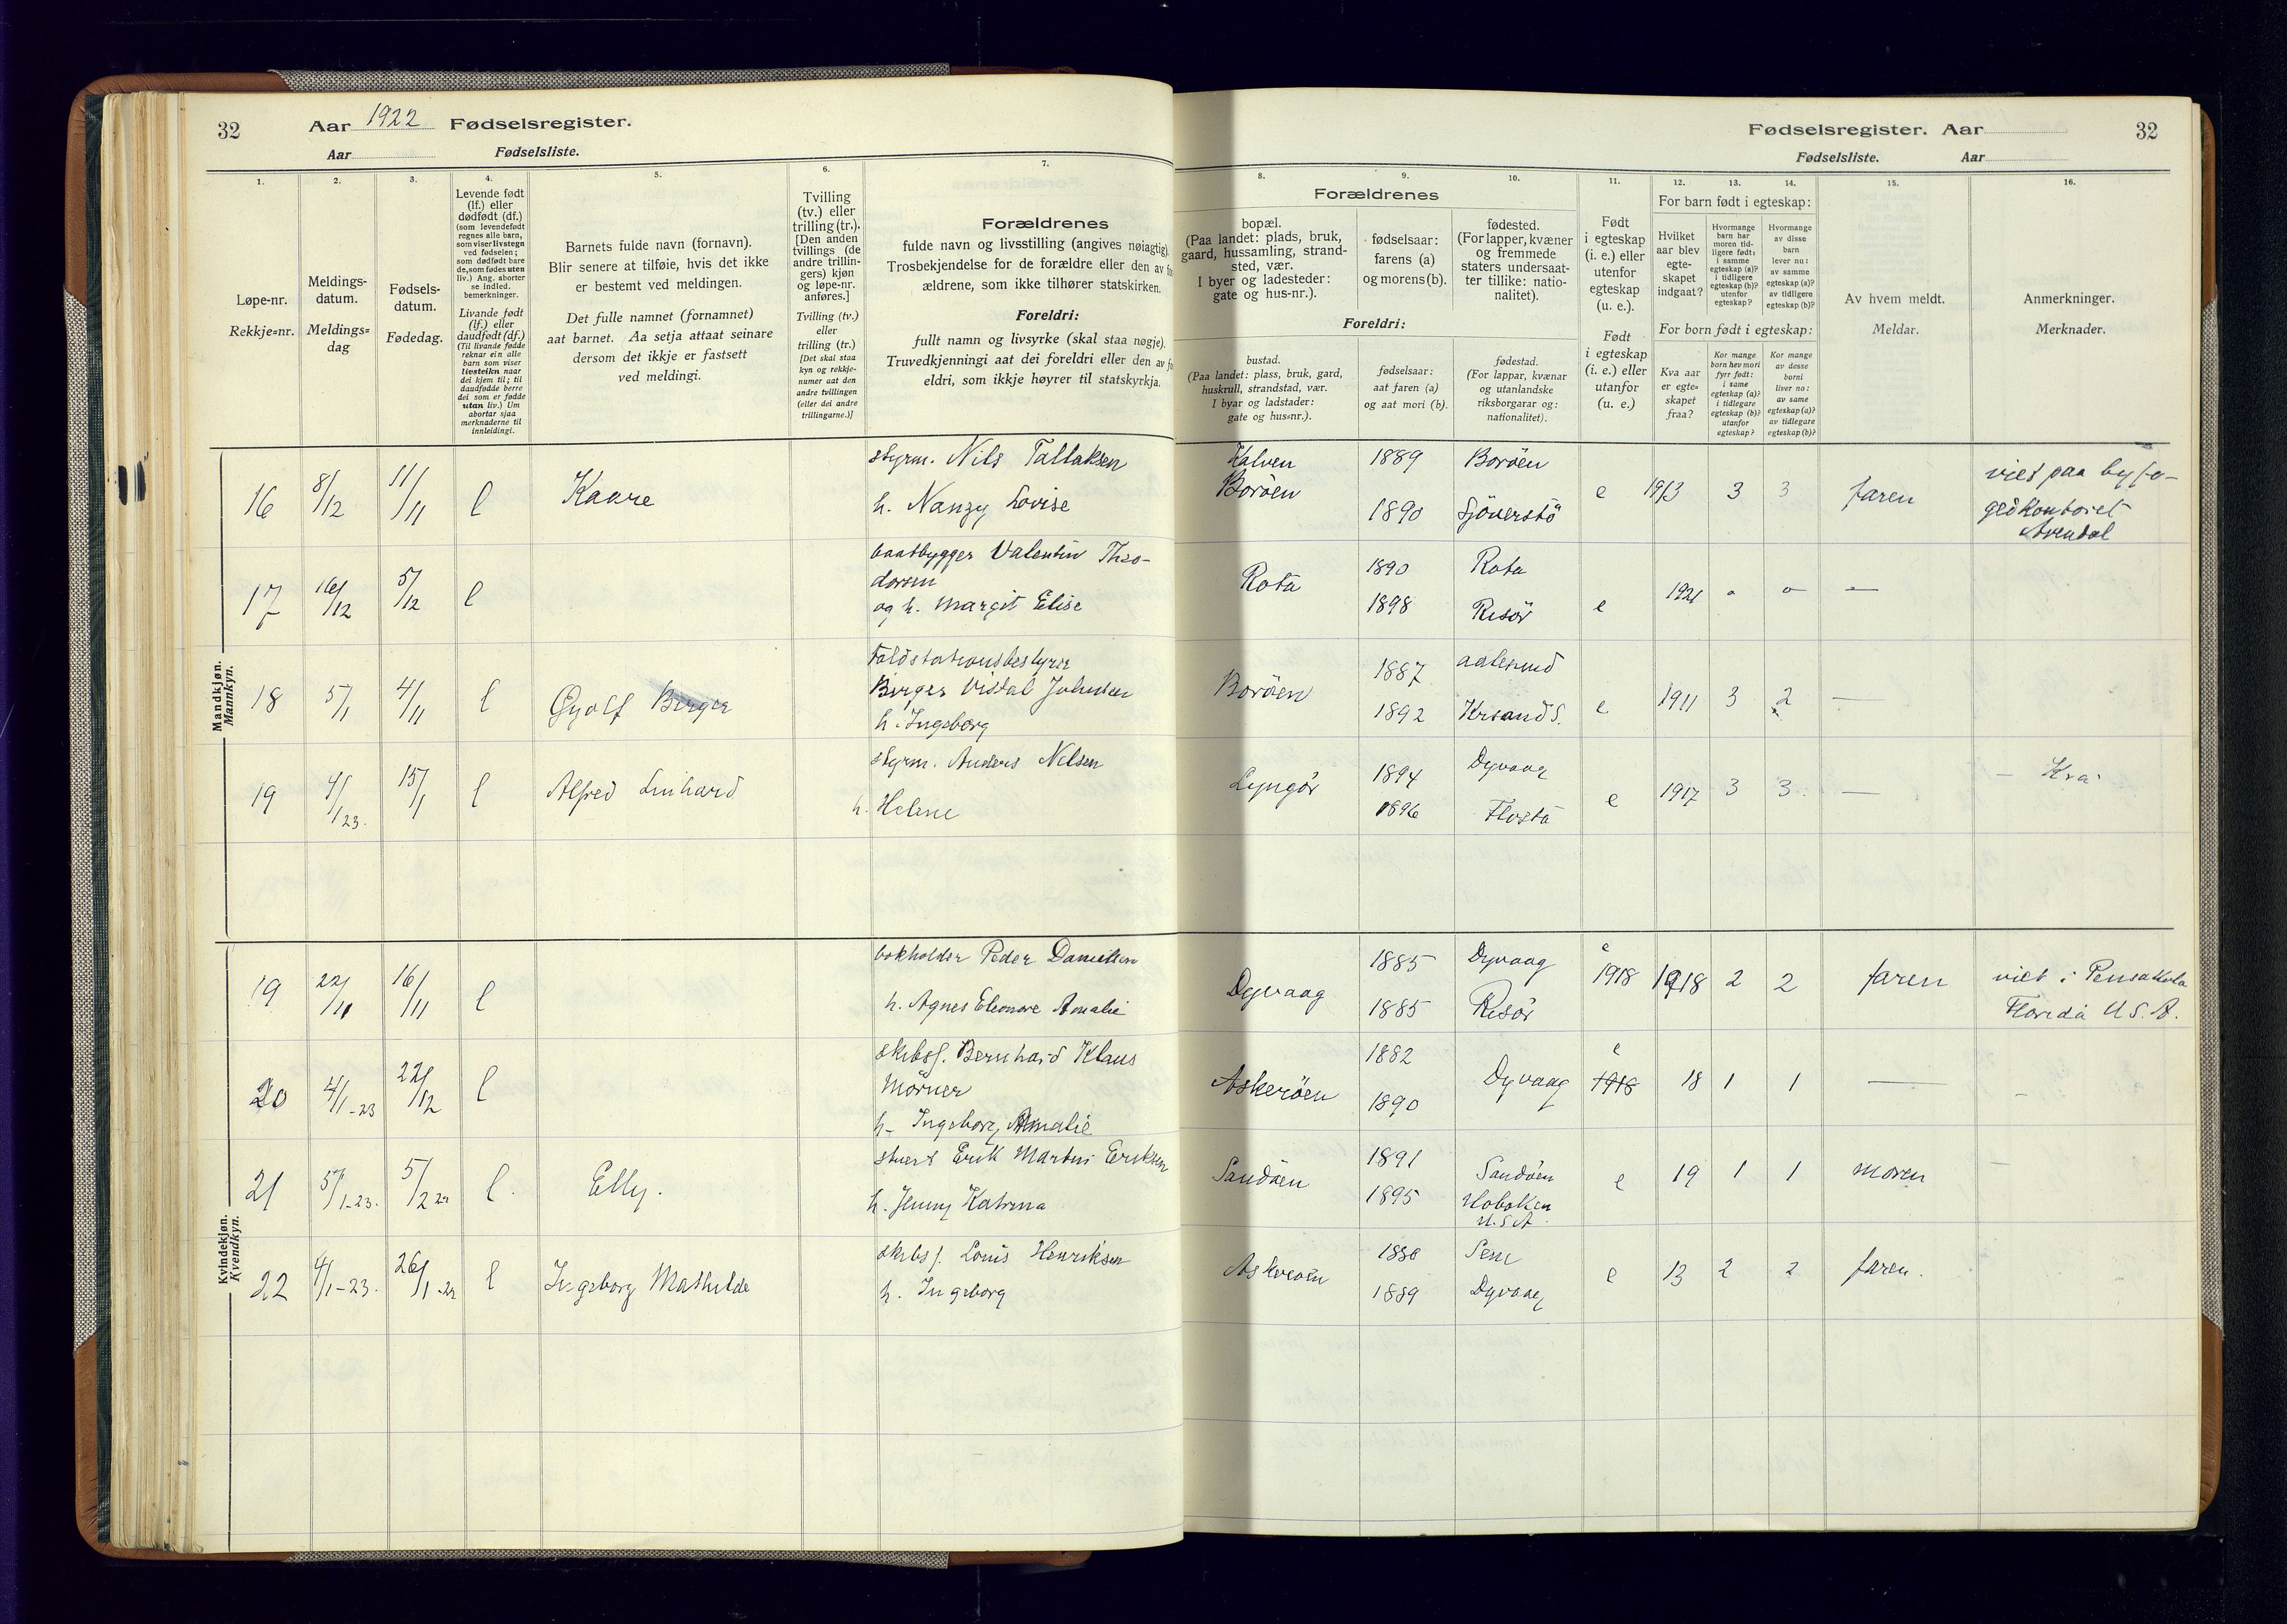 32 Aar 1922 Fødselsregister.
Aar Fødselsliste.
Fødselsregister. Aar 32
Fødselsliste. Aar
1.
Løpe-nr.
Rekkje=nr.
2.
Meldings-
datum.
Meldings=
dag
3.
Fødsels-
datum.
Fødedag.
4.
Levende født
(lf.) eller
dødfødt (df.)
(som levendefødt
regnes alle barn,
som viser livstegn
ved fødselen;
som dødfødt bare
de, som fødes uten
liv.) Ang. aborter
se indled.
bemerkninger.
Livande født
(lf.) eller
daudfødt (df.)
(Til livande fødde
reknar ein alle
barn som viser
livsteikn naar
dei kjem til; til
daudfødde berre
dei som er fødde
utan liv.) Um
abortar sjaa
merknaderne til
innleidingi.
5.
Barnets fulde navn (fornavn).
Blir senere at tilføie, hvis det ikke
er bestemt ved meldingen.
Det fulle namnet (fornamnet)
aat barnet. Aa setja attaat seinare
dersom det ikkje er fastsett
ved meldingi.
6.
Tvilling
(tv.) eller
trilling (tr.).
[Den anden
tvillings (de
andre trillin-
gers) kjøn
og løpe-nr.
anføres.]
Tvilling (tv.)
eller
trilling (tr.)
[Det skal staa
kyn og rekkje-
numer aat den
andre tvillingen
(eller dei andre
trillingarne.)]
7.
Forældrenes
fulde navn og livsstilling (angives nøiagtig).
Trosbekjendelse for de forældre eller den av
ældrene, som ikke tilhører statskirken.
Foreldri:
fullt namn og livsyrke (skal staa nøgje).
Truvedkjenningi aat dei foreldri eller den av
eldri, som ikkje høyrer til statskyrkja.
8.
Forældrenes
bopæl.
(Paa landet: plads, bruk,
gaard, hussamling, strand-
sted, vær.
I byer og ladesteder:
gate og hus-nr.).
Foreldri:
bustad.
(Paa landet: plass, bruk, gard,
huskrull, strandstad, vær.
I byar og ladstader:
gate og hus=nr.).
9.
fødselsaar:
farens (a)
og morens (b).
fødselsaar:
aat faren (a)
og aat mori (b).
10.
fødested.
(For lapper, kvæner
og fremmede
staters undersaat-
ter tillike: natio-
nalitet).
fødestad.
(For lappar, kvænar
og utanlandske
riksborgarar og:
nationalitet).
11.
Født
i egteskap
(i. e.) eller
utenfor
egteskap
(u. e.).
Født
i egteskap
(i. e.) eller
utanfor
(u. e.)
12.
For barn født i egteskap:
Hvilket
aar blev
egte-
skapet
indgaat?
For born født i egteskap:
Kva aar
er egte=
skapet
fraa?
13.
Hvormange
barn har
moren tid-
ligere født:
i samme
egteskap (a)?
i tidligere
egteskap (b)?
utenfor
egteskap?
Kor mange
born hev mori
fyrr født:
i same
egteskap (a)?
i tidlegare
egteskap (b)?
utanfor
egteskap?
14.
Hvormange
av disse
barn
lever nu:
av samme
egteskap (a)?
av tidligere
egteskap (b)?
Kor mange
av desse
borni
liver no:
av same
egteskap (a)?
av tidlegare
egteskap (b)?
15.
Av hvem meldt.
Meldar.
16.
Anmerkninger.
Merknader.
Mandkjøn.
Mannkyn.
16 8/12 11/11 l Kaare
styrm. Nils Tallaksen
h. Nanzy Lovise
Kalven
Borøen
1889 Borøen
1890
e 1913 3 3 faren
viet paa byfo-
gedkontoret
Arendal
17 16/12 5/12 l
baatbygger Valentin Theo-
dorsen
og h. Margit Elise
Rota 1890 Rota
1898 Risör e 1921 o o —
18 5/1 4/11 l Gyolf Birger
Birger Vistal Johnsen
h. Ingeborg
Borøen 1887 Aalesund
1892 Krsand S. e 1911 3 2 —
19 4/1 23. 15/1 l Alfred Linhard
styrm. Anders Nilsen
h. Helene
Lyngör 1894 Dyvaag
1896 Flosta e 1917 3 3 —
Kvindekjøn.
Kvendkyn.
19 22/11 16/11 l
bokholder Peder Danielsen
h. Agnes Eleonore Amalie
Dyvaag 1885 Dyvaag
1885 Risör
e
1918 1918 2 2 faren
viet i Pensakola
Florida U.S.A.
20 4/1-23 22/12 l
skibsf. Bernhard Klaus
Mörner
h- Ingeborg Amalie
Askerøen 1882
1890 Dyvaag
e
1918 18 1 1 —
21 5/1-23. 5/2 22 l. Elly.
stuert Erik Martin Eriksen
h. Jenny Katrina
Sandøen 1891 Sandøen
1895 Hoboken
U.S.A. e 19 1 1 moren
22 4/1-23. 26/1-22 l Ingeborg Mathilde
skibsf. Louis Henriksen
h. Ingeborg
Askerøen 1886 Sem
1889 Dyvaag e 13 2 2 faren.